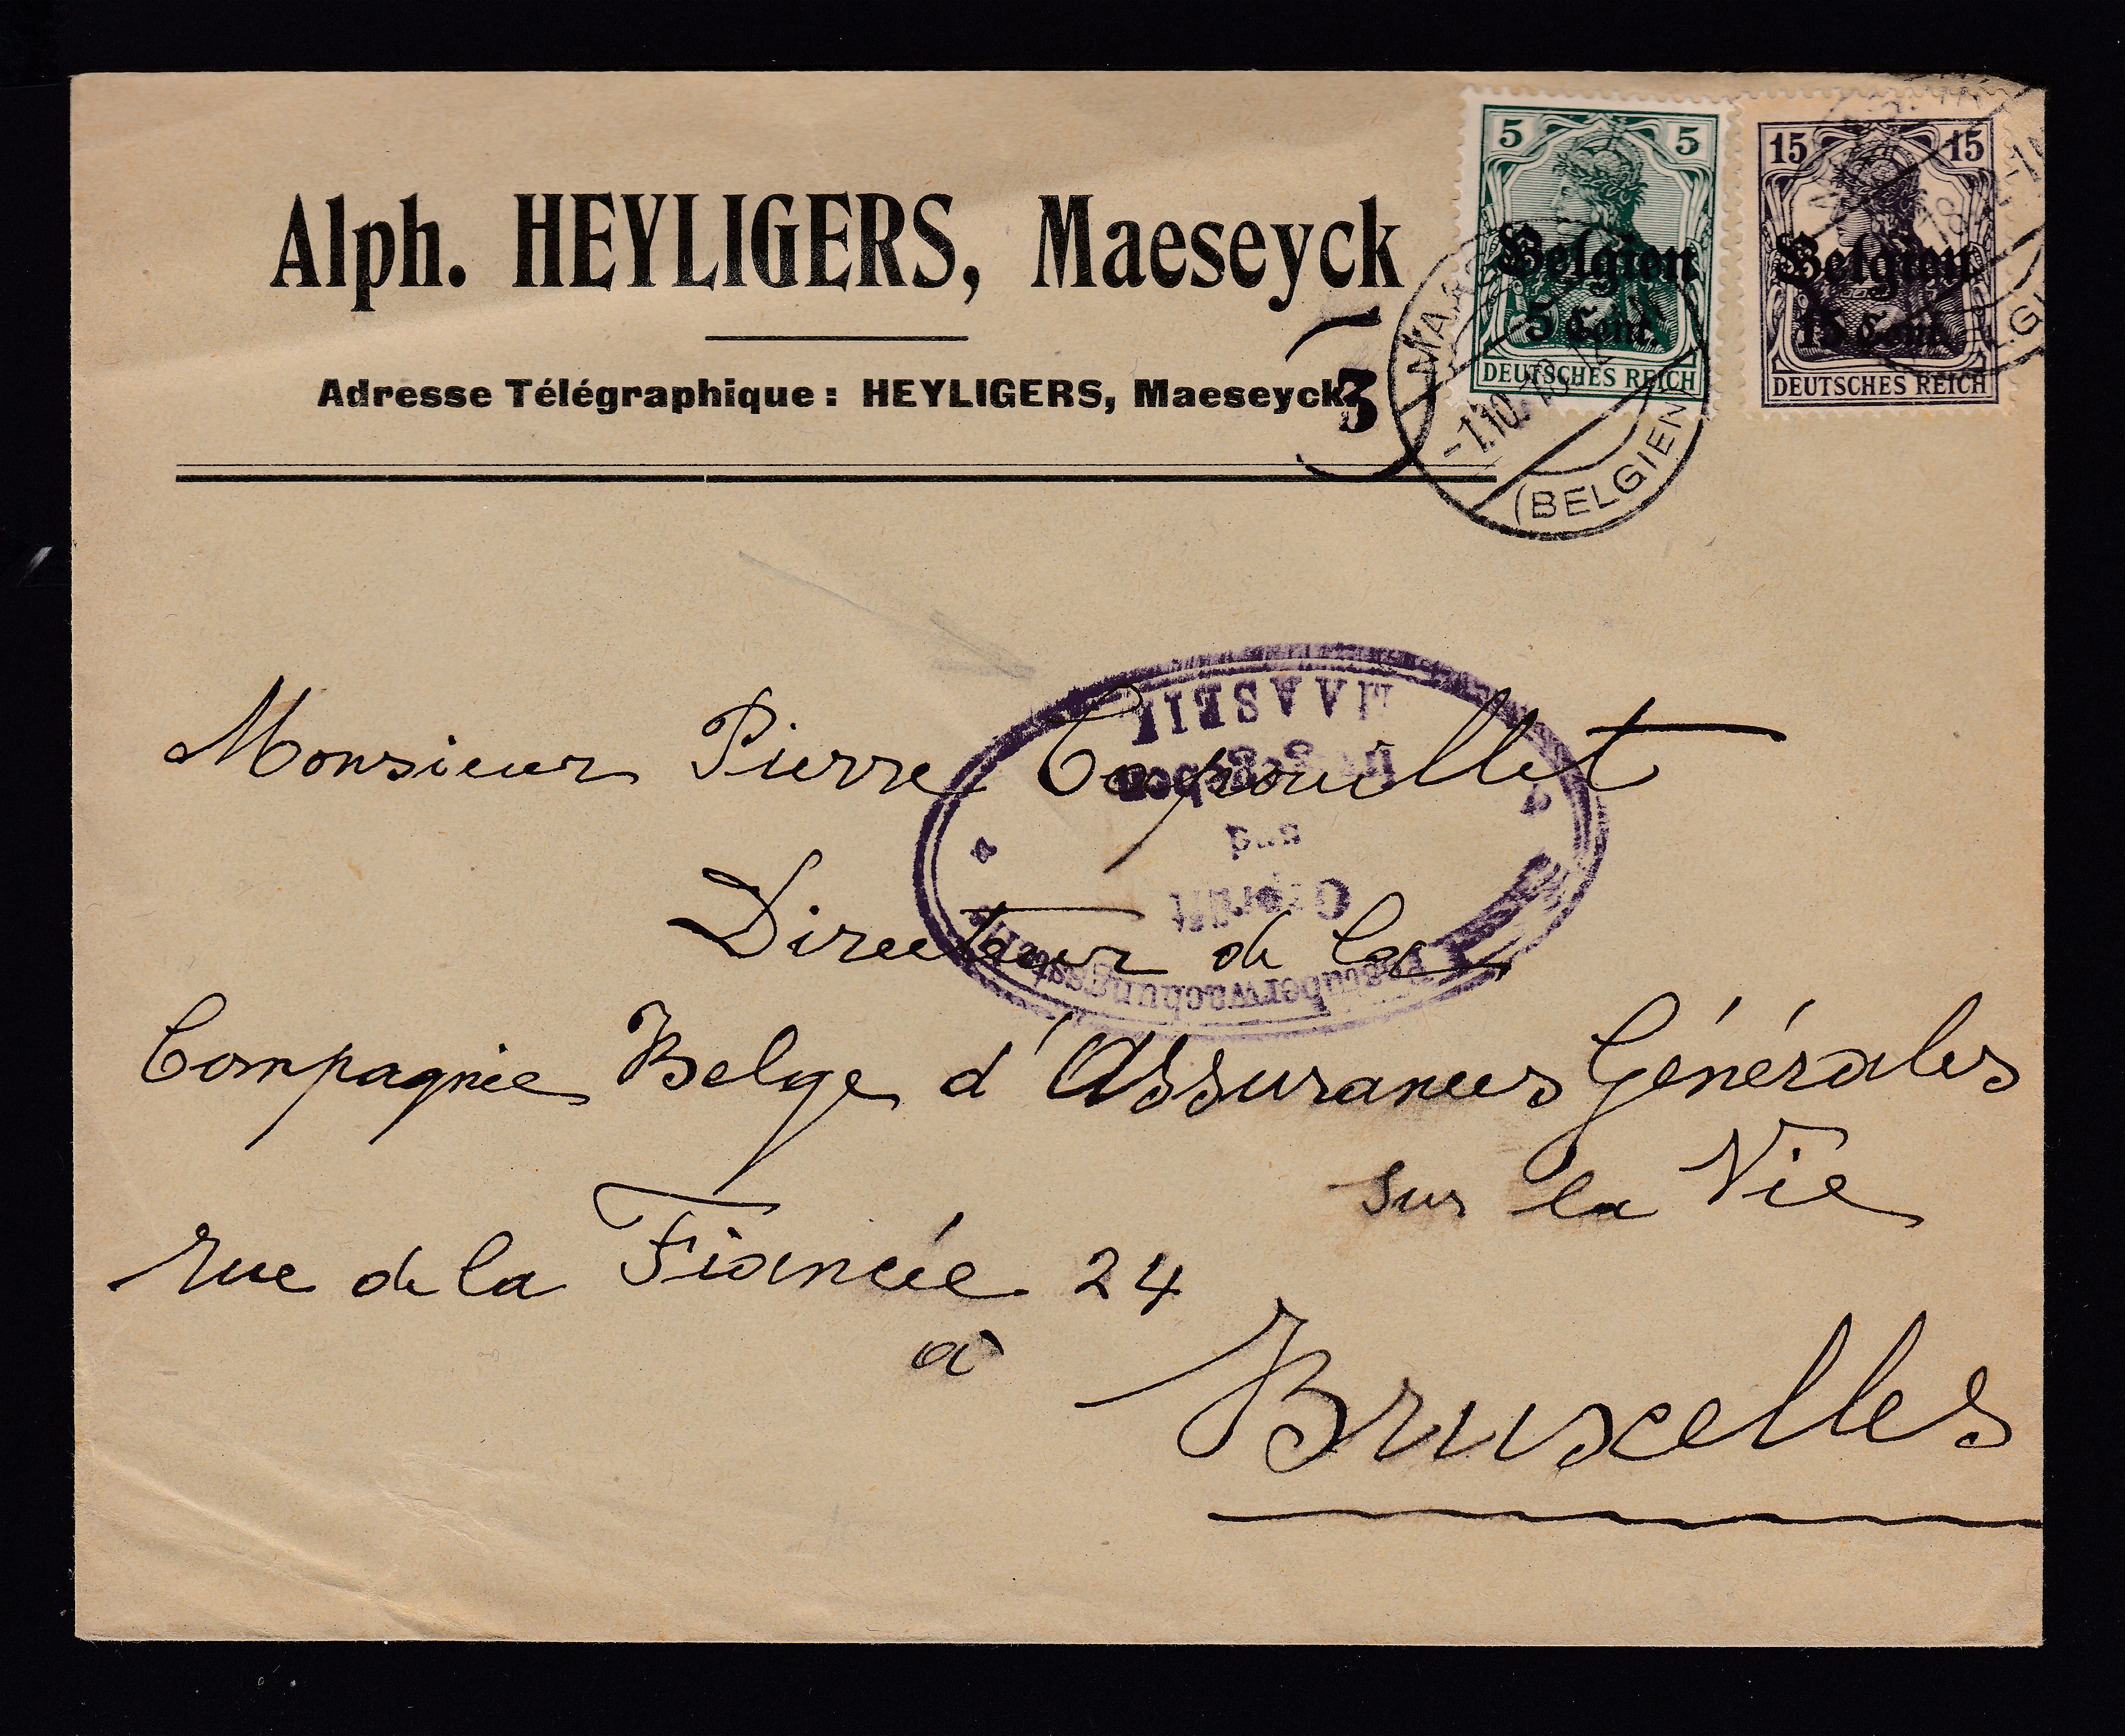 Alph. HEYLIGERS, Maeseyck
Adresse Télégraphique : HEYLIGERS, Maeseyck
3
5 5
Belgien
5 Cent.
DEUTSCHES REICH
15 15
Belgien
15 Cent.
DEUTSCHES REICH
(BELGIEN)
MAASEIK
freigegeben
und
Geprüft
Postüberwachungsstelle
Monsieur Pierre Capouillet
Directeur de la
Compagnie Belge d'Assurances Générales
sur la Vie
rue de la Fiancée 24
à Bruxelles